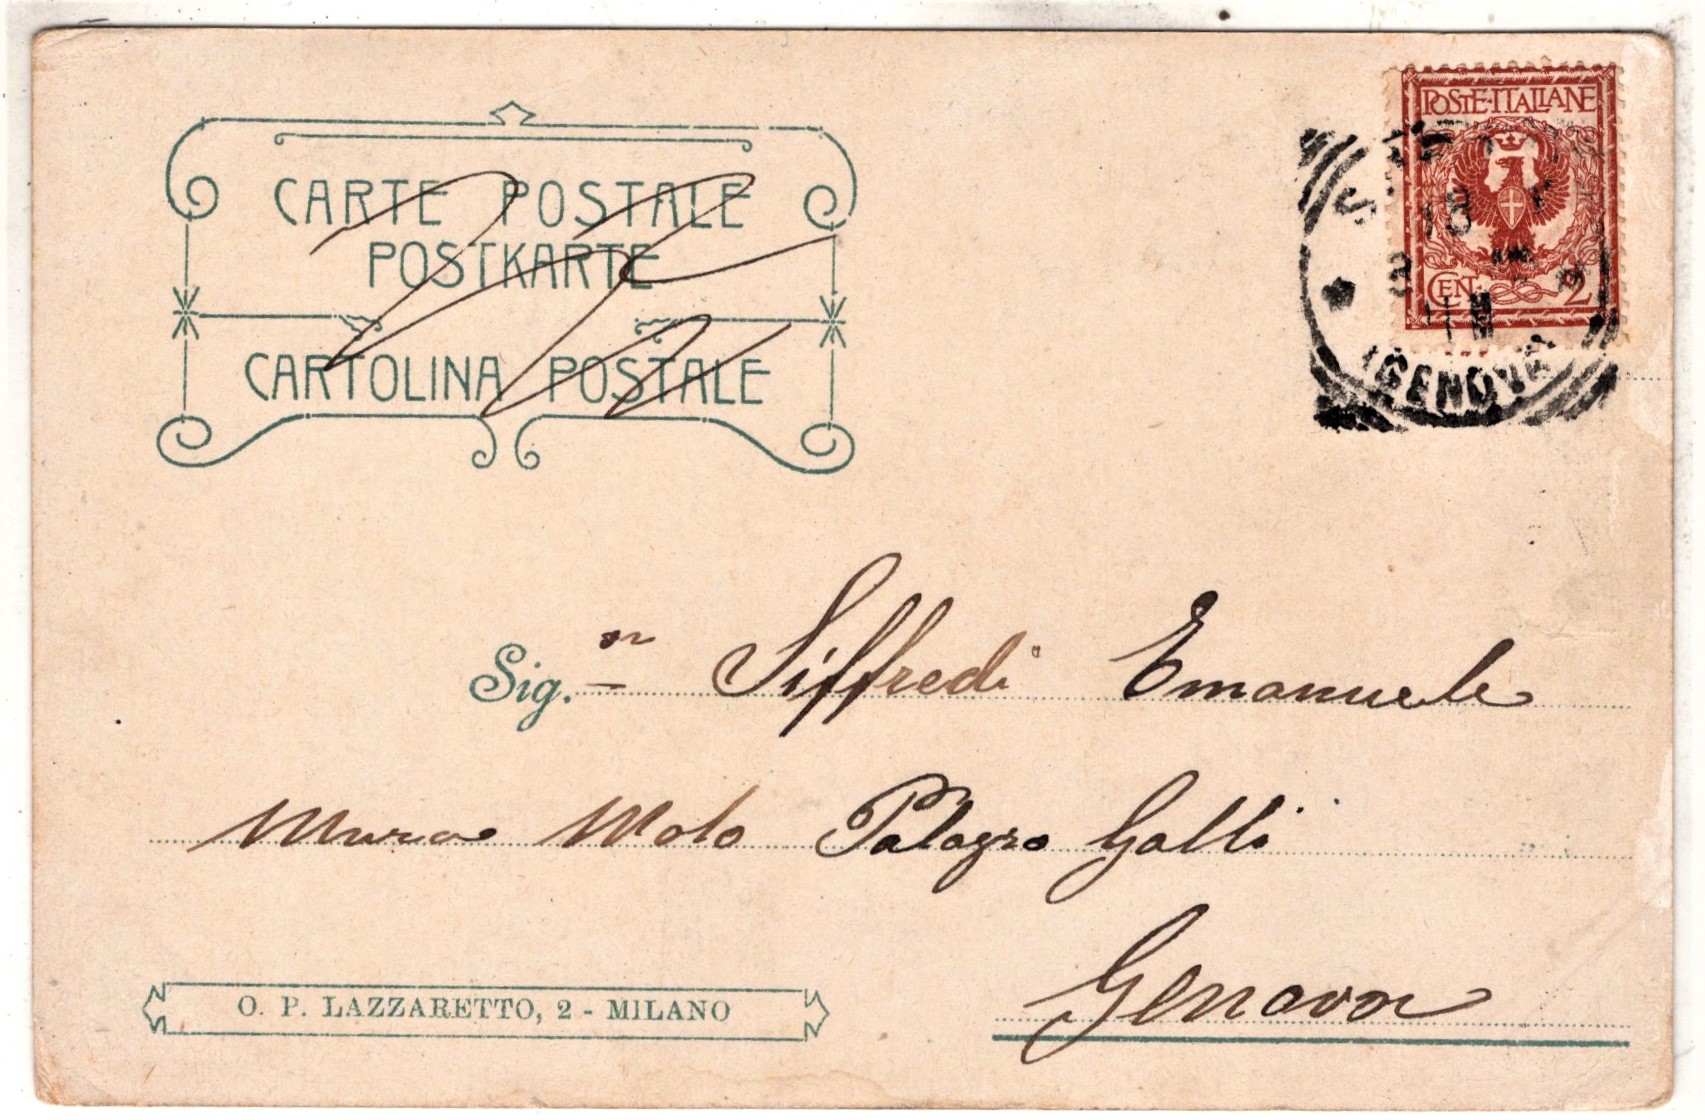 CARTE POSTALE
POSTKARTE
CARTOLINA POSTALE
POSTE·ITALIANE
CEN. 2
18
(GENOVA)
Sig.or Siffredi Emanuele
Mura Molo Palazzo Galli
Genova
O. P. LAZZARETTO, 2 - MILANO